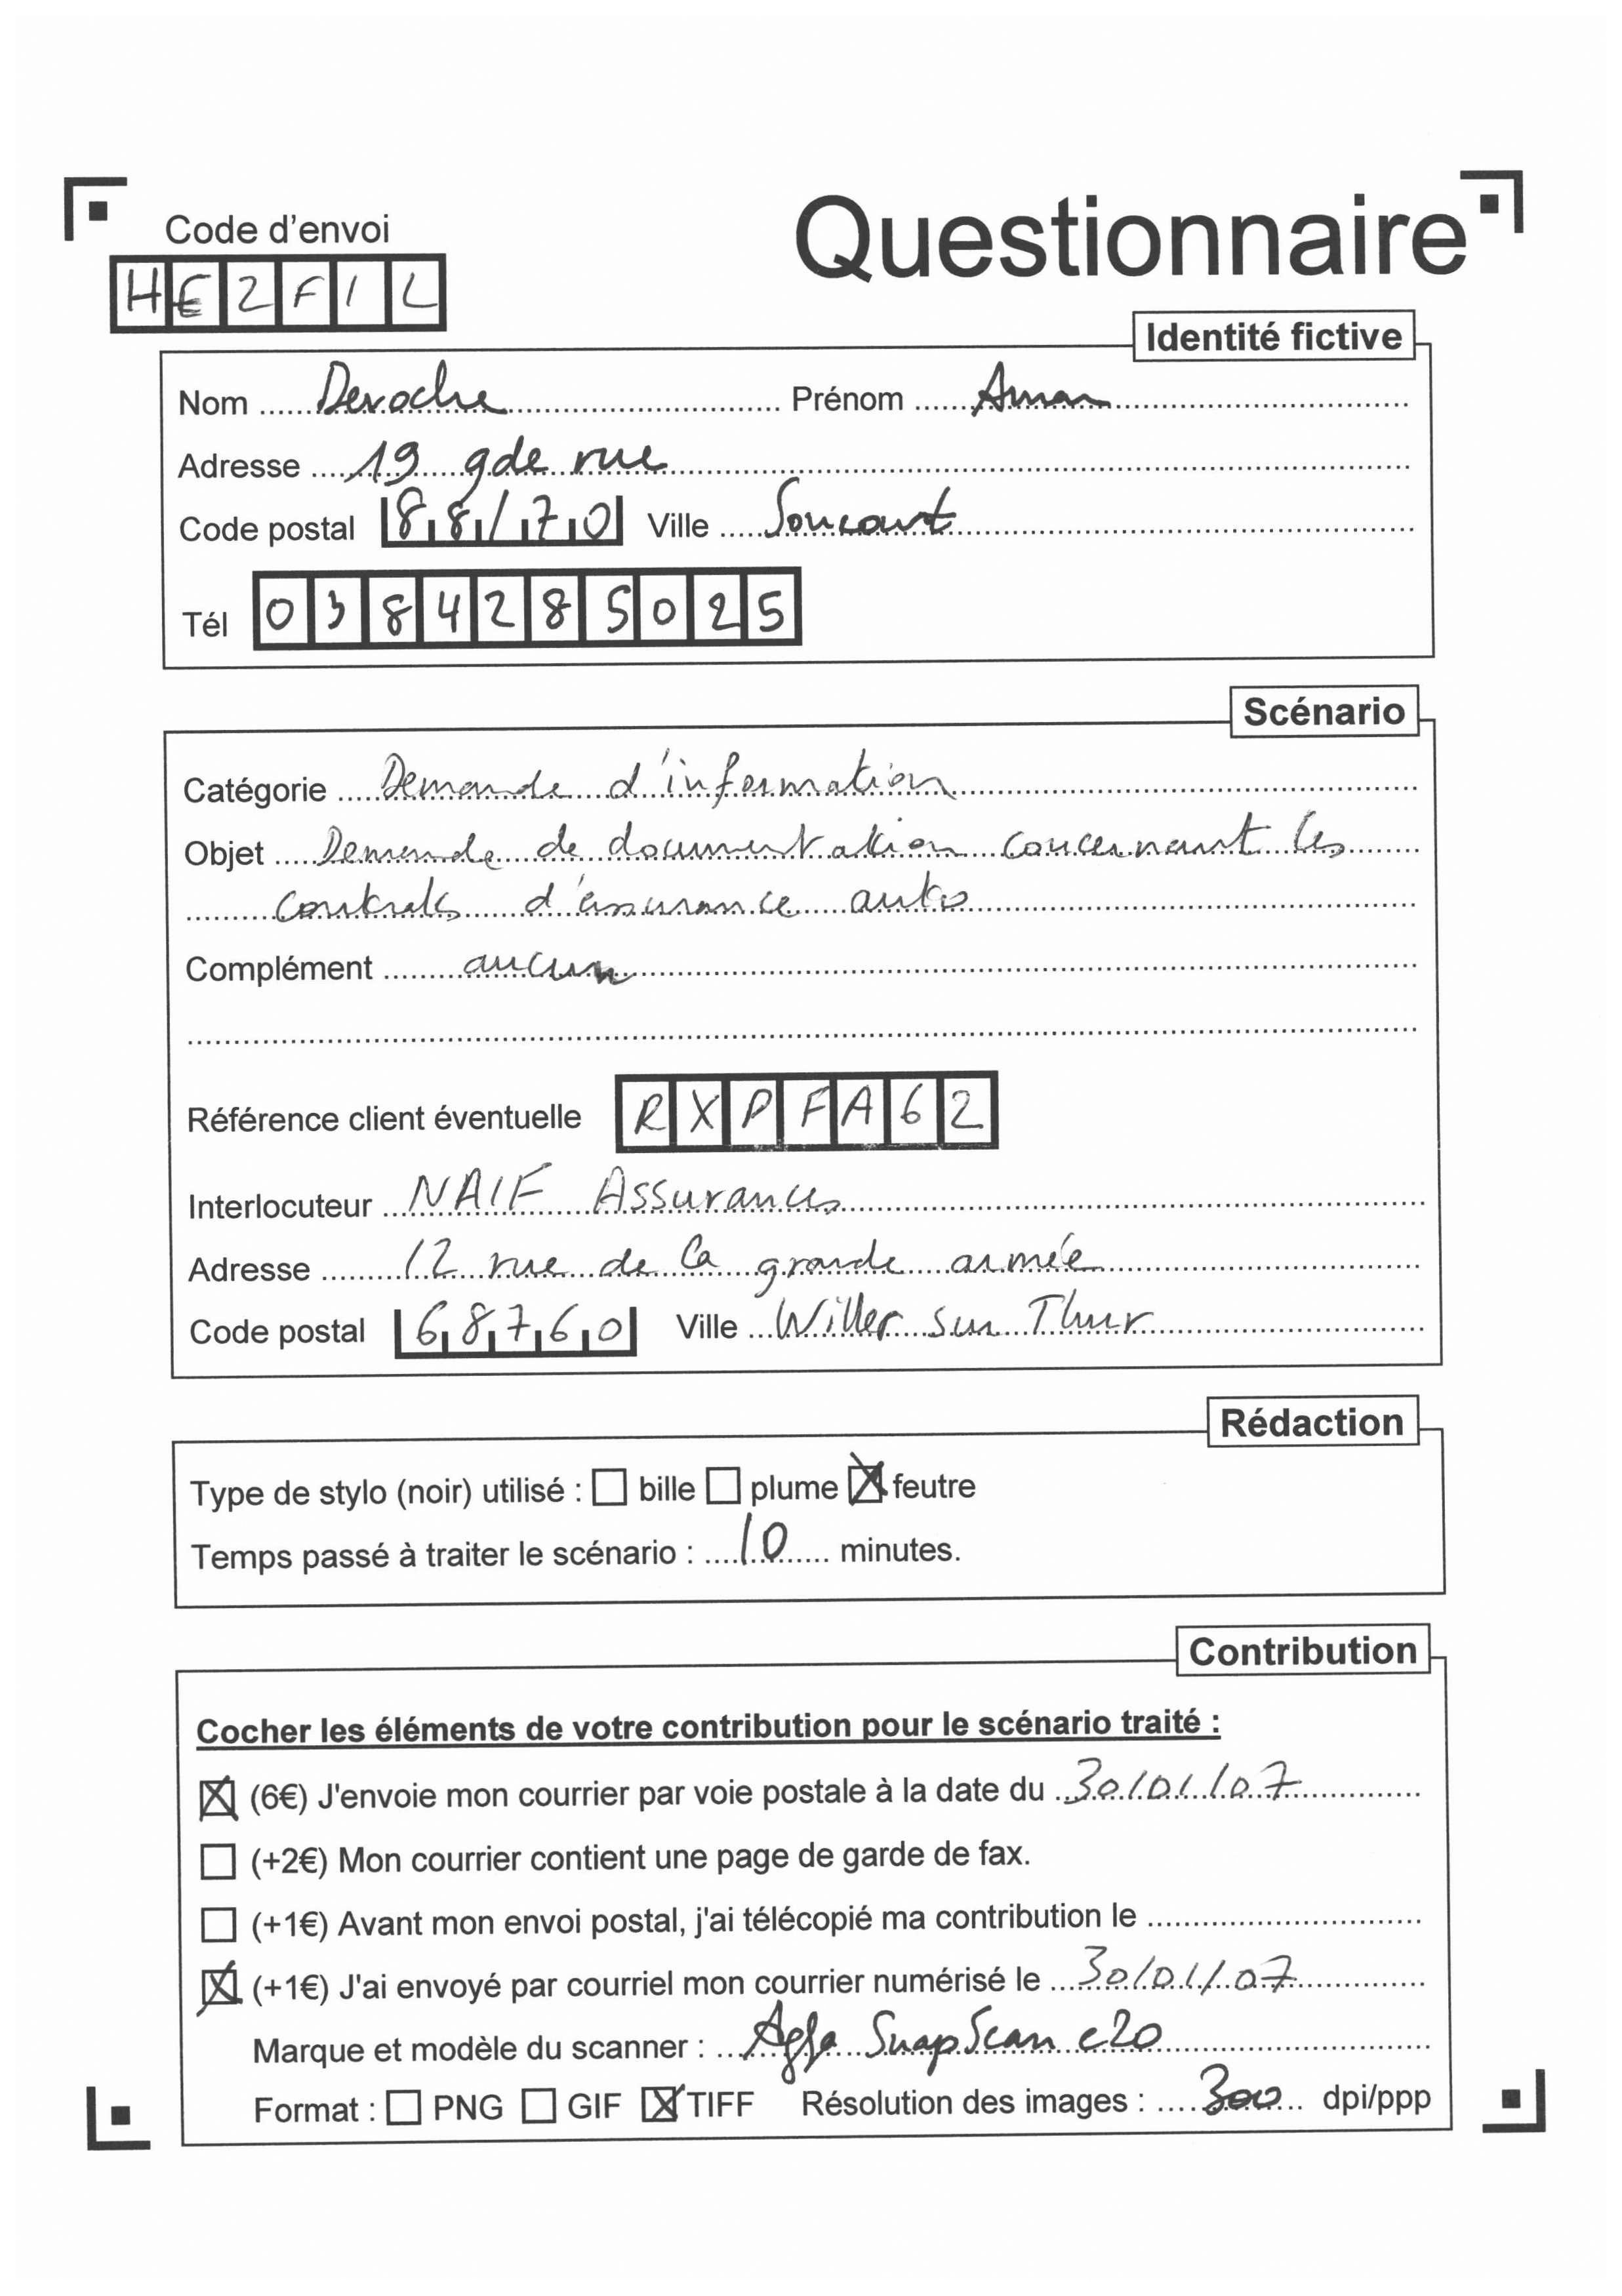 Questionnaire
Code d'envoi
HE2F1L
Identité fictive
Nom Deroche Prénom Aman
Adresse 19 gde rue
Code postal 88170 Ville Soncourt
Tél 0384285025
Scénario
Catégorie Demande d'information
Objet Demande de documentation concernant les
contrats d'assurance autos
Complément aucun
Référence client éventuelle RXPFA62
Interlocuteur NAIF Assurances
Adresse 12 rue de la grande armée
Code postal 68760 Ville Willer sur Thur
Rédaction
Type de stylo (noir) utilisé : bille plume feutre
Temps passé à traiter le scénario : 10 minutes.
Contribution
Cocher les éléments de votre contribution pour le scénario traité :
(6€) J'envoie mon courrier par voie postale à la date du 30/01/07
(+2€) Mon courrier contient une page de garde de fax.
(+1€) Avant mon envoi postal, j'ai télécopié ma contribution le
(+1€) J'ai envoyé par courriel mon courrier numérisé le 30/01/07
Marque et modèle du scanner : Agfa SnapScan e20
Format : PNG GIF TIFF Résolution des images : 300 dpi/ppp